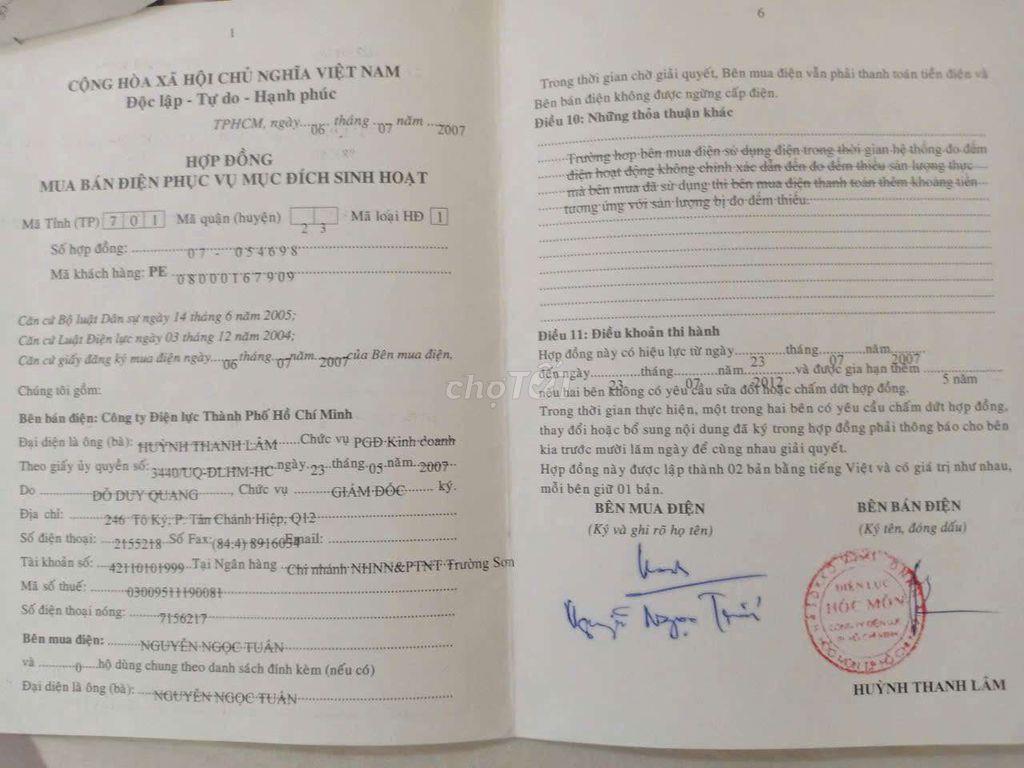 1
CỘNG HÒA XÃ HỘI CHỦ NGHĨA VIỆT NAM
Độc lập - Tự do - Hạnh phúc
TPHCM, ngày....06 tháng ..07 năm ...2007
HỢP ĐỒNG
MUA BÁN ĐIỆN PHỤC VỤ MỤC ĐÍCH SINH HOẠT
Mã Tỉnh (TP) 7 0 1 Mã quận (huyện) 2 3 Mã loại HĐ 1
Số hợp đồng: 07 - 054698
Mã khách hàng: PE 08000167909
Căn cứ Bộ luật Dân sự ngày 14 tháng 6 năm 2005;
Căn cứ Luật Điện lực ngày 03 tháng 12 năm 2004;
Căn cứ giấy đăng ký mua điện ngày....06 tháng..07 năm..2007 của Bên mua điện,
Chúng tôi gồm:
Bên bán điện: Công ty Điện lực Thành Phố Hồ Chí Minh
Đại diện là ông (bà): HUỲNH THANH LÂM.....Chức vụ PGĐ Kinh doanh
Theo giấy ủy quyền số: 3440/UQ-ĐLHM-HC ngày..23 tháng.05 năm..2007
Do ĐỖ DUY QUANG, Chức vụ GIÁM ĐỐC ký.
Địa chỉ: 246 Tô Ký, P. Tân Chánh Hiệp, Q12
Số điện thoại: 2155218 Số Fax: (84.4) 8916054 Email:
Tài khoản số: 42110101999 Tại Ngân hàng Chi nhánh NHNN&PTNT Trường Sơn
Mã số thuế: 03009511190081
Số điện thoại nóng: 7156217
Bên mua điện: NGUYỄN NGỌC TUÂN
và 0 hộ dùng chung theo danh sách đính kèm (nếu có)
Đại diện là ông (bà): NGUYỄN NGỌC TUÂN
6
Trong thời gian chờ giải quyết, Bên mua điện vẫn phải thanh toán tiền điện và
Bên bán điện không được ngừng cấp điện.
Điều 10: Những thỏa thuận khác
Trường hợp bên mua điện sử dụng điện trong thời gian hệ thống đo đếm
điện hoạt động không chính xác dẫn đến đo đếm thiếu sản lượng thực
mà bên mua đã sử dụng thì bên mua điện thanh toán thêm khoảng tiền
tương ứng với sản lượng bị đo đếm thiếu.
Điều 11: Điều khoản thi hành
Hợp đồng này có hiệu lực từ ngày....23 tháng....07 năm....2007
đến ngày....23 tháng....07 năm....2012 và được gia hạn thêm 5 năm
nếu hai bên không có yêu cầu sửa đổi hoặc chấm dứt hợp đồng.
Trong thời gian thực hiện, một trong hai bên có yêu cầu chấm dứt hợp đồng,
thay đổi hoặc bổ sung nội dung đã ký trong hợp đồng phải thông báo cho bên
kia trước mười lăm ngày để cùng nhau giải quyết.
Hợp đồng này được lập thành 02 bản bằng tiếng Việt và có giá trị như nhau,
mỗi bên giữ 01 bản.
BÊN MUA ĐIỆN BÊN BÁN ĐIỆN
(Ký và ghi rõ họ tên) (Ký tên, đóng dấu)
Nguyễn Ngọc
ĐIỆN LỰC
HÓC MÔN
HUỲNH THANH LÂM
chợTỐT